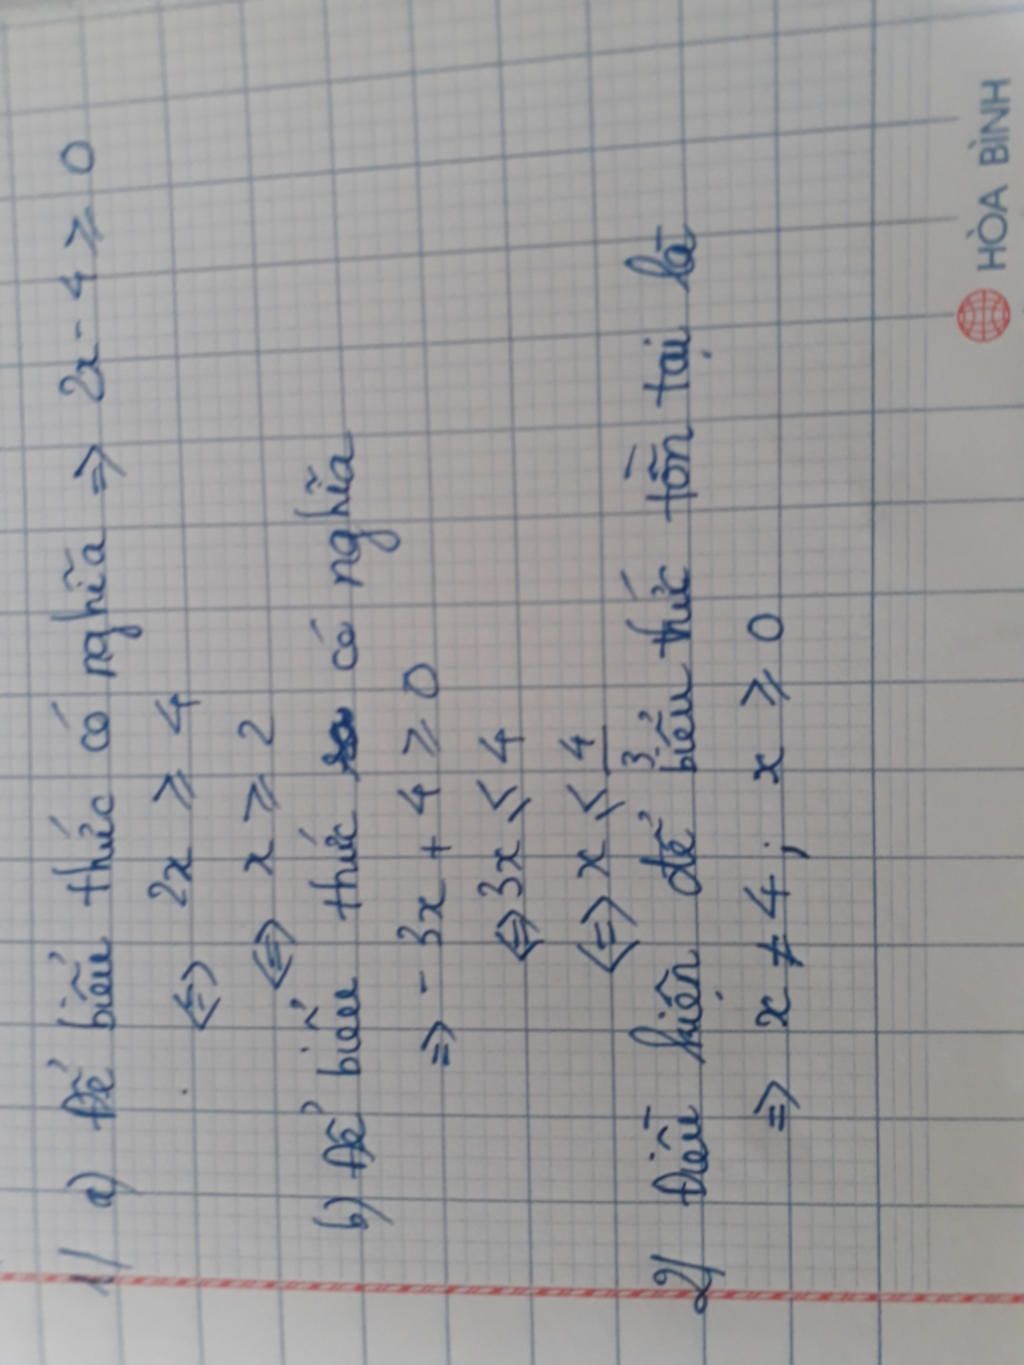 1/ a) Để biểu thức có nghĩa => 2x - 4 ⩾ 0
<=> 2x ⩾ 4
<=> x ⩾ 2
b) Để biểu thức có nghĩa
=> - 3x + 4 ⩾ 0
<=> 3x ⩽ 4
<=> x ⩽ 4/3
2/ Điều kiện để biểu thức tồn tại là
=> x ≠ 4; x ⩾ 0
HÒA BÌNH